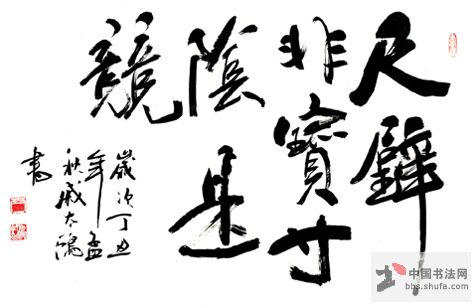 尺璧
非寶寸
陰是
競
歲次丁丑
年孟
秋
書
中国书法网
bbs.shufa.com